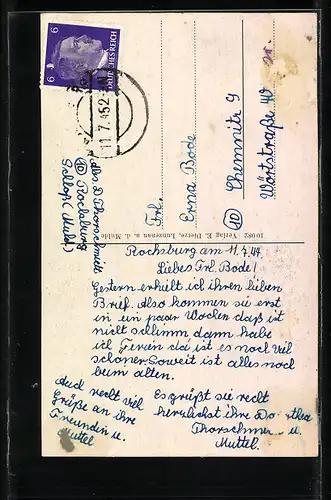 6 6
DEUTSCHES REICH
11.7.45 2
Abs. D. Thorschmidt
(10) Rochsburg
Schloß (Muld.)
Frl.
Erna Bode
(10) Chemnitz 9
Wörtstraße 40
10082 Verlag E. Dietze, Lunzenau a. d. Mulde
Rochsburg am 11.7.44.
Liebes Frl. Bode!
Gestern erhielt ich ihren lieben
Brief. Also kommen sie erst
in ein paar Wochen daß ist
nicht schlimm dann habe
ich Ferien da ist es noch viel
schöner. Soweit ist alles noch
beim alten.
Es grüßt sie recht
herzlichst ihre Dorothea
Thorschmidt u.
Muttel.
Auch recht viel
Grüße an ihre
Freundin u.
Muttel